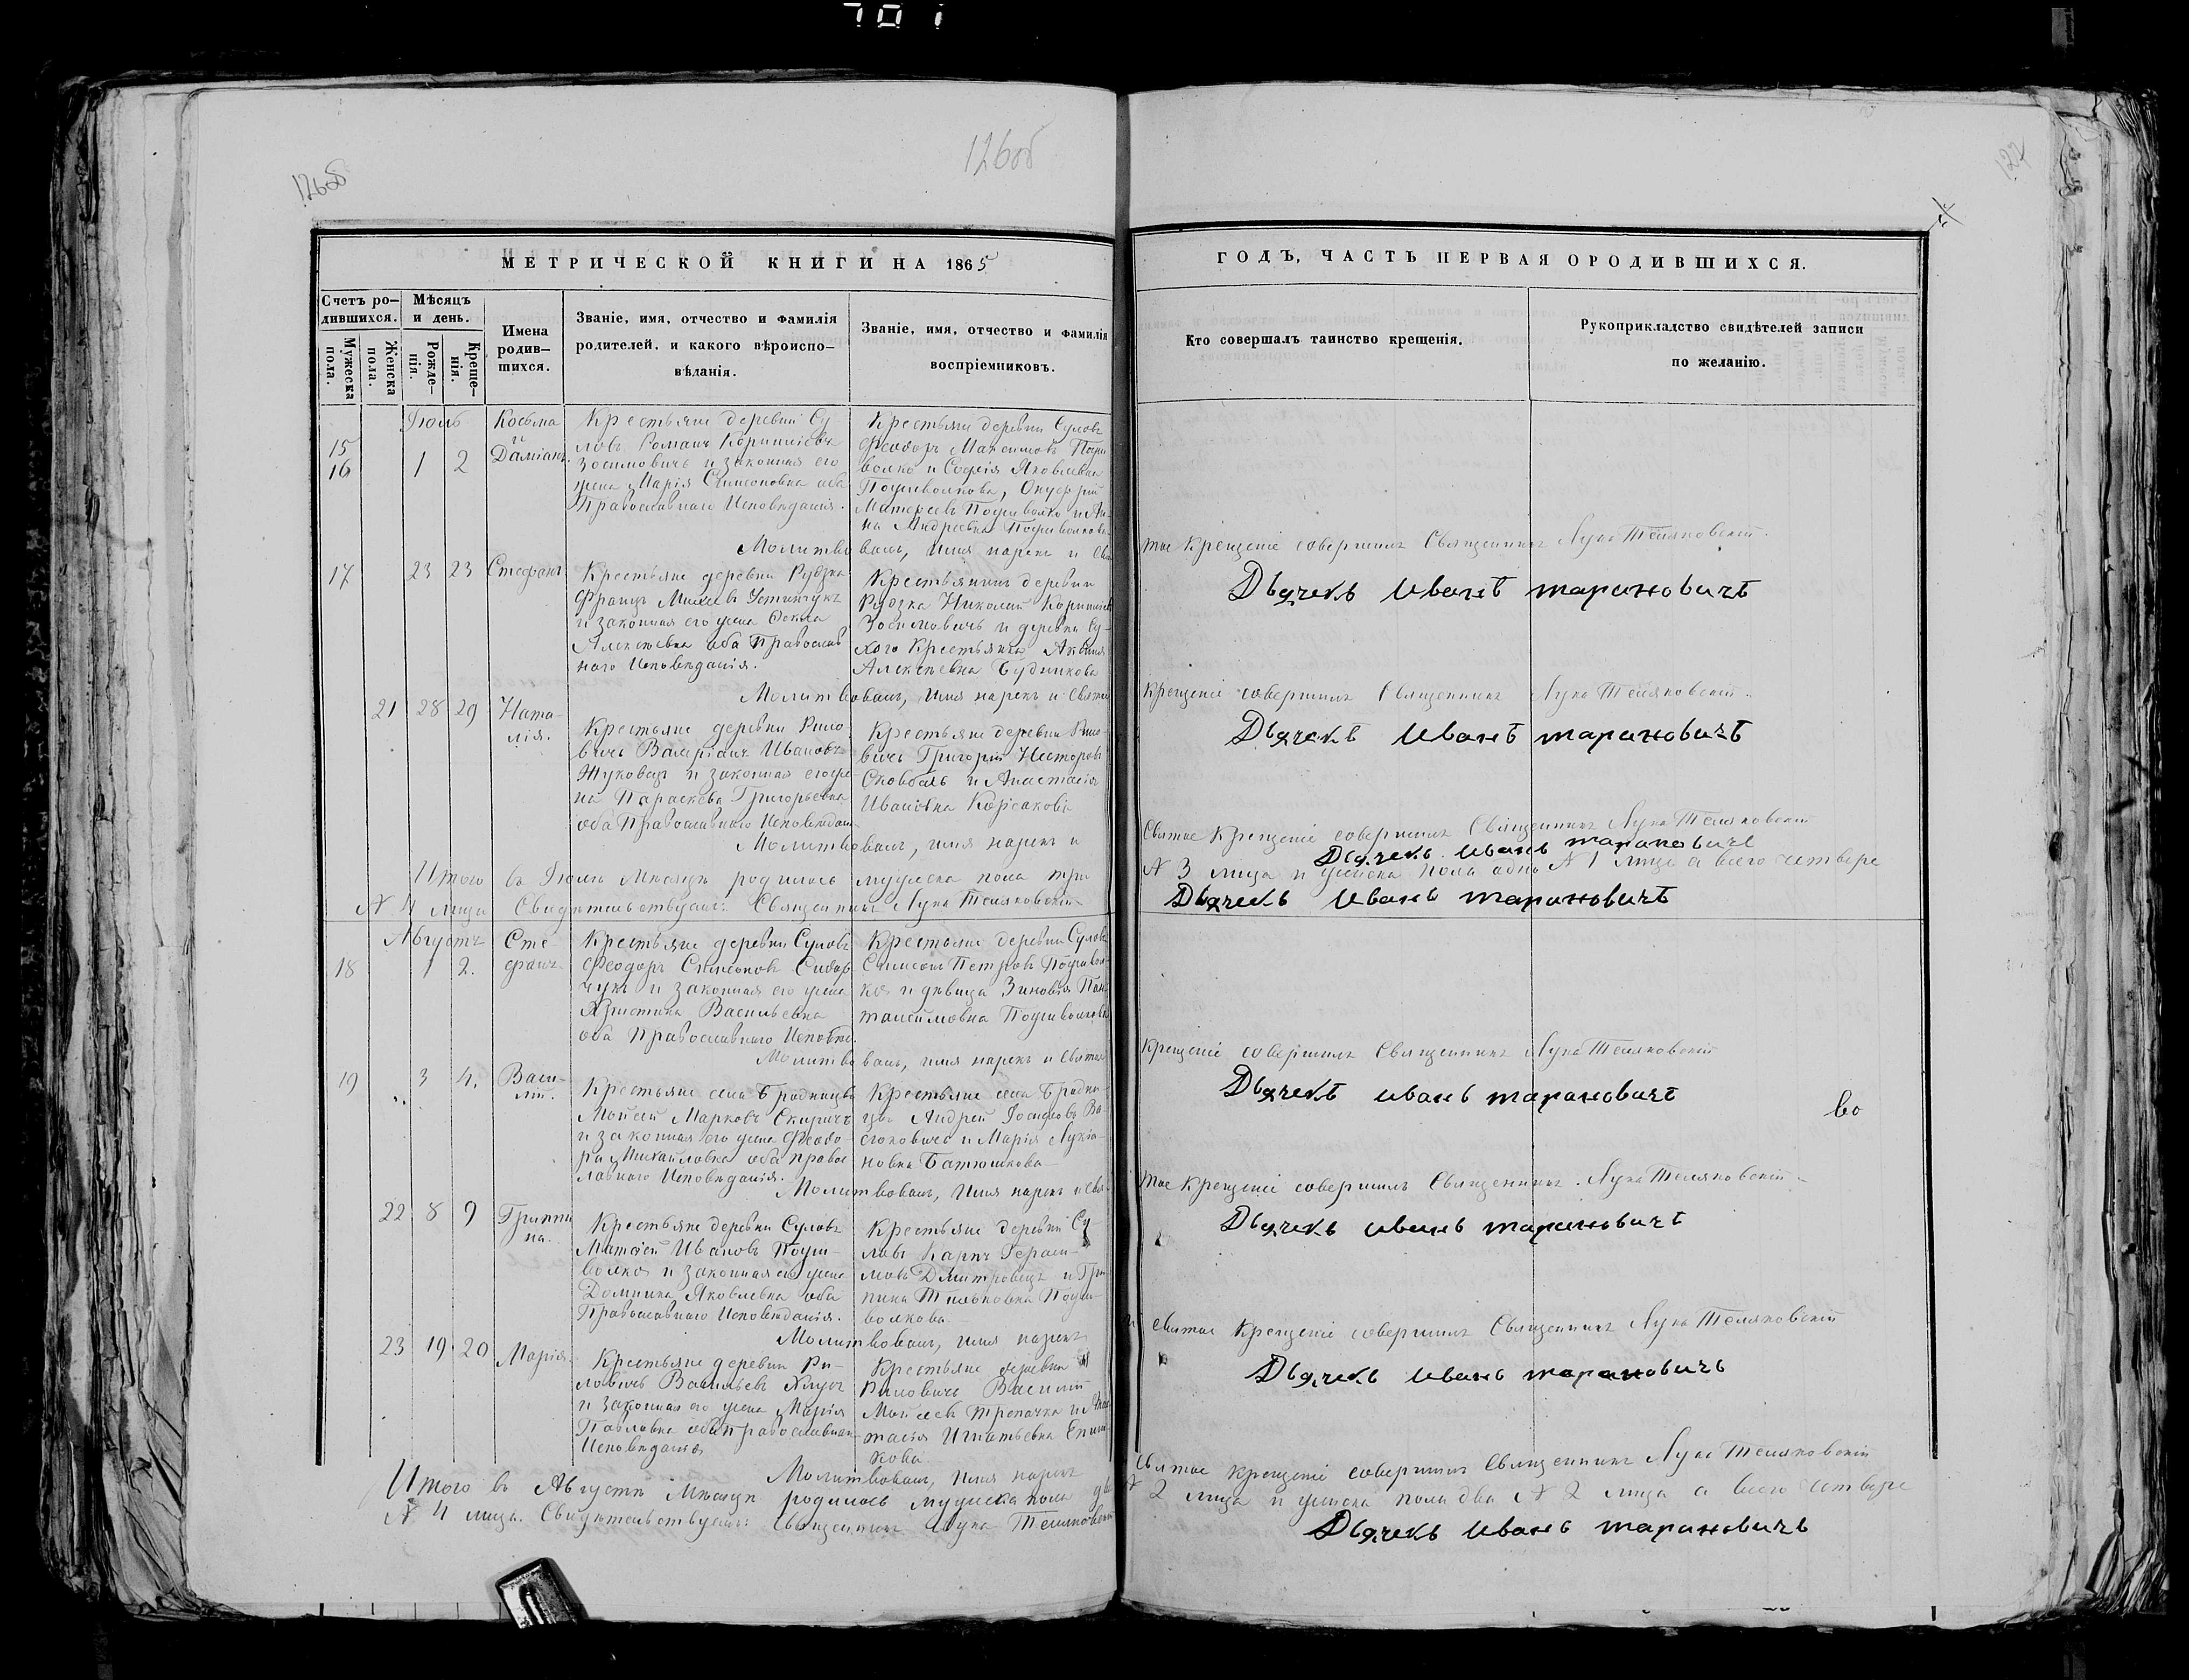 701
126об
126об
127
МЕТРИЧЕСКОЙ КНИГИ НА 1865
ГОДЪ, ЧАСТЬ ПЕРВАЯ О РОДИВШИХСЯ.
Счетъ ро-
дившихся.
Мужеска
пола.
Женска
пола.
Мѣсяцъ
и день.
Рожде-
нія.
Креще-
нія.
Имена
родив-
шихся.
Званіе, имя, отчество и фамилія
родителей, и какого вѣроиспо-
вѣданія.
Званіе, имя, отчество и фамилія
воспріемниковъ.
Кто совершалъ таинство крещенія.
Рукоприкладство свидѣтелей записи
по желанію.
Іюль
15
16
1 2
Косьма
и
Даміанъ.
Крестьяне деревни Су
ловъ Романъ
Зосимовичъ и законная его
жена Марія Симеоновна оба
Православнаго Исповѣданія.
Крестьяне деревни Суловъ
Феодоръ Максимовъ
и Софія Яковлевна
Онуфрій
на Андреевна
Молитвовалъ, имя нарекъ и Свя
тое Крещеніе совершилъ Священникъ Лука Теляковскій.
Дьячекъ Иванъ тарановичъ
17 23 23 Стефанъ
Крестьяне деревни Рудзка
Францъ Михеевъ Устинчукъ
и законная его жена Фекла
Алексѣевна оба Православ
наго Исповѣданія.
Крестьянинъ деревни
Рудзка Николай
Зосимовичъ и деревни Су-
хого Крестьянка
Алексѣевна Будникова
Молитвовалъ, имя нарекъ и Святое
Крещеніе совершилъ Священникъ Лука Теляковскій.
Дьячекъ Иванъ тарановичъ
21 28 29 Ната-
лія.
Крестьяне деревни Рило
вичъ Валеріанъ Ивановъ
Жуковецъ и законная его же
на Параскева Григорьевна
оба Православнаго Исповѣдан.
Крестьяне деревни Рило-
вичъ Григорій Несторовъ
и Анастасія
Ивановна Корсакова
Молитвовалъ, имя нарекъ и
Святое Крещеніе совершилъ Священникъ Лука Теляковскій
Дьячекъ Иванъ тарановичъ
Итого въ Іюлѣ Мѣсяцѣ родилось мужеска пола три
№ 3 лица и женска пола одно № 1 лице а всего четверо
№ 4 лица Свидѣтельствуемъ: Священникъ Лука Теляковскій
Дьячекъ Иванъ тарановичъ
Августъ
18 1 2.
Сте-
фанъ.
Крестьяне деревни Суловъ
Феодоръ Симеоновъ Сидор
чукъ и законная его жена
Христина Васильевна
оба Православнаго Исповѣд.
Крестьяне деревни Суловъ
Симеонъ Петровъ
и дѣвица Зиновія Пан
Молитвовалъ, имя нарекъ и Святое
Крещеніе совершилъ Священникъ Лука Теляковскій
Дьячекъ иванъ тарановичъ
во
19 3 4.
Васи-
лій.
Крестьяне села Бродницы
Мойсей Марковъ Скиричъ
и законная его жена Феодо-
ра Михайловна оба право
славнаго Исповѣданія.
Крестьяне села Бродни-
цы Андрей Іосифовъ Ва-
сюковичъ и Марія Лукія-
новна Батюшкова
Молитвовалъ, имя нарекъ и Свя-
тое Крещеніе совершилъ Священникъ Лука Теляковскій
Дьячекъ иванъ тарановичъ
22 8 9
Гриппи
на.
Крестьяне деревни Суловъ
Матѳей Ивановъ
и законная его жена
Домника Яковлевна оба
Православнаго Исповѣданія.
Крестьяне деревни Су-
ловъ Карпъ Гераси-
мовъ Дмитровецъ и Гри
пина
Молитвовалъ, имя нарекъ
и Святое Крещеніе совершилъ Священникъ Лука Теляковскій
Дьячекъ иванъ тарановичъ
23 19 20 Марія.
Крестьяне деревни Ри-
ловичъ Васильевъ
и законная его жена Марія
Павловна оба православнаго
Исповѣданія
Крестьяне деревни
Риловичъ Василій
Мойсеевъ Трепачка и
тасія Игнатьевна
кова
Молитвовалъ, имя нарекъ
Святое Крещеніе совершилъ Священникъ Лука Теляковскій
Итого въ Августѣ Мѣсяцѣ родилось мужеска пола два
№ 2 лица и женска пола два № 2 лица а всего четверо
№ 4 лица. Свидѣтельствуемъ: Священникъ Лука Теляковскій
Дьячекъ иванъ тарановичъ